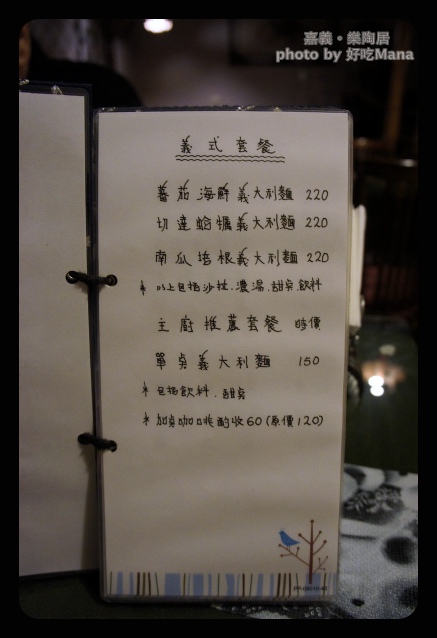 嘉義・樂陶居
photo by 好吃Mana
義式套餐
蕃茄海鮮義大利麵 220
切達蛤蠣義大利麵 220
南瓜培根義大利麵 220
* 以上包括沙拉.濃湯.甜點.飲料
主廚推薦套餐 時價
單點義大利麵 150
* 包括飲料.甜點
* 加點咖啡酌收60(原價120)